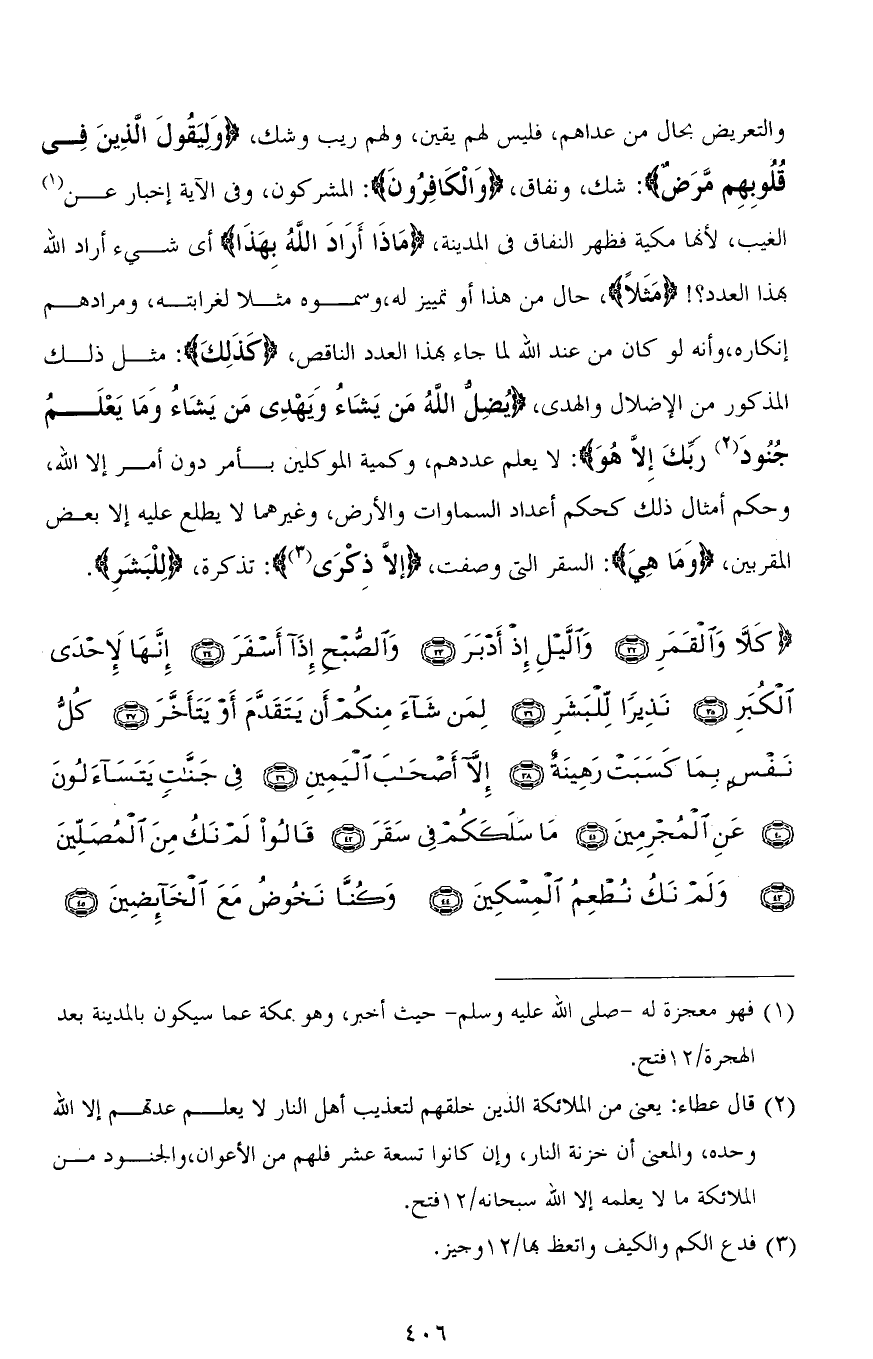 والتعريض بحال من عداهم، فليس لهم يقين، ولهم ريب وشك، ﴿وَلِيَقُولَ الَّذِينَ فِى
قُلُوبِهِم مَّرَضٌ﴾: شك، ونفاق، ﴿وَالْكَافِرُونَ﴾: المشركون، وفى الآية إخبار عن(١)
الغيب، لأنها مكية فظهر النفاق فى المدينة، ﴿مَاذَا أَرَادَ اللَّهُ بِهَذَا﴾ أى شيء أراد الله
بهذا العدد؟! ﴿مَثَلاً﴾، حال من هذا أو تمييز له،وسموه مثلا لغرابته، ومرادهم
إنكاره،وأنه لو كان من عند الله لما جاء بهذا العدد الناقص، ﴿كَذَلِكَ﴾: مثل ذلك
المذكور من الإضلال والهدى، ﴿يُضِلُّ اللَّهُ مَن يَشَاءُ وَيَهْدِى مَن يَشَاءُ وَمَا يَعْلَمُ
جُنُودَ(٢) رَبِّكَ إِلاَّ هُوَ﴾: لا يعلم عددهم، وكمية الموكلين بأمر دون أمر إلا الله،
وحكم أمثال ذلك كحكم أعداد السماوات والأرض، وغيرهما لا يطلع عليه إلا بعض
المقربين، ﴿وَمَا هِيَ﴾: السقر التى وصفت، ﴿إِلاَّ ذِكْرَى(٣)﴾: تذكرة، ﴿لِلْبَشَرِ﴾.
﴿ كَلَّا وَٱلْقَمَرِ ٣٢ وَٱلَّيْلِ إِذْ أَدْبَرَ ٣٣ وَٱلصُّبْحِ إِذَآ أَسْفَرَ ٣٤ إِنَّهَا لَإِحْدَى
ٱلْكُبَرِ ٣٥ نَذِيرًا لِّلْبَشَرِ ٣٦ لِمَن شَآءَ مِنكُمْ أَن يَتَقَدَّمَ أَوْ يَتَأَخَّرَ ٣٧ كُلُّ
نَفْسٍۭ بِمَا كَسَبَتْ رَهِينَةٌ ٣٨ إِلَّآ أَصْحَٰبَ ٱلْيَمِينِ ٣٩ فِى جَنَّٰتٍ يَتَسَآءَلُونَ
٤٠ عَنِ ٱلْمُجْرِمِينَ ٤١ مَا سَلَكَكُمْ فِى سَقَرَ ٤٢ قَالُوا۟ لَمْ نَكُ مِنَ ٱلْمُصَلِّينَ
٤٣ وَلَمْ نَكُ نُطْعِمُ ٱلْمِسْكِينَ ٤٤ وَكُنَّا نَخُوضُ مَعَ ٱلْخَآئِضِينَ ٤٥
(١) فهو معجزة له -صلى الله عليه وسلم- حيث أخبر، وهو بمكة عما سيكون بالمدينة بعد
الهجرة/١٢فتح.
(٢) قال عطاء: يعنى من الملائكة الذين خلقهم لتعذيب أهل النار لا يعلم عدتهم إلا الله
وحده، والمعنى أن خزنة النار، وإن كانوا تسعة عشر فلهم من الأعوان،والجنود من
الملائكة ما لا يعلمه إلا الله سبحانه/١٢فتح.
(٣) فدع الكم والكيف واتعظ بها/١٢وجيز.
٤٠٦